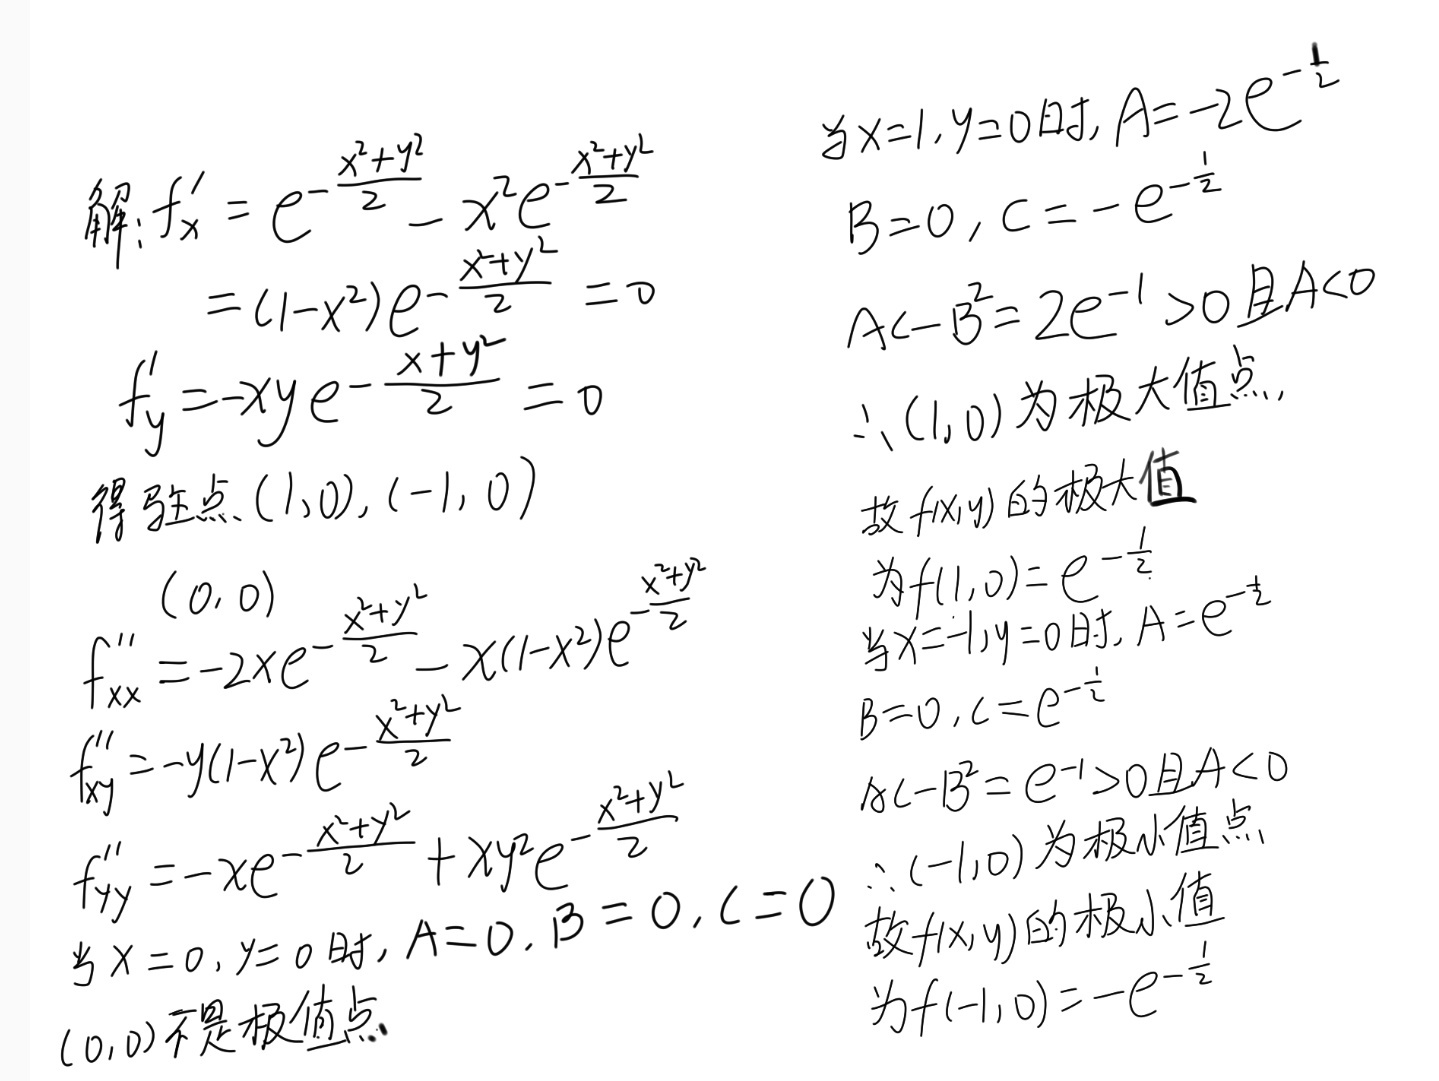 解: f'x = e^{-\frac{x²+y²}{2}} - x²e^{-\frac{x²+y²}{2}}
= (1-x²)e^{-\frac{x²+y²}{2}} = 0
f'y = -xye^{-\frac{x+y²}{2}} = 0
得驻点(1,0),(-1,0)
(0,0)
f''xx = -2xe^{-\frac{x²+y²}{2}} - x(1-x²)e^{-\frac{x²+y²}{2}}
f''xy = -y(1-x²)e^{-\frac{x²+y²}{2}}
f''yy = -xe^{-\frac{x²+y²}{2}} + xy²e^{-\frac{x²+y²}{2}}
当x=0,y=0时,A=0,B=0,C=0
(0,0)不是极值点.
当x=1,y=0时,A=-2e^{-\frac{1}{2}}
B=0,C=-e^{-\frac{1}{2}}
AC-B²=2e^{-1}>0且A<0
∴(1,0)为极大值点,
故f(x,y)的极大值
为f(1,0)=e^{-\frac{1}{2}}
当x=-1,y=0时,A=e^{-\frac{1}{2}}
B=0,C=e^{-\frac{1}{2}}
AC-B²=e^{-1}>0且A<0
∴(-1,0)为极小值点,
故f(x,y)的极小值
为f(-1,0)=-e^{-\frac{1}{2}}